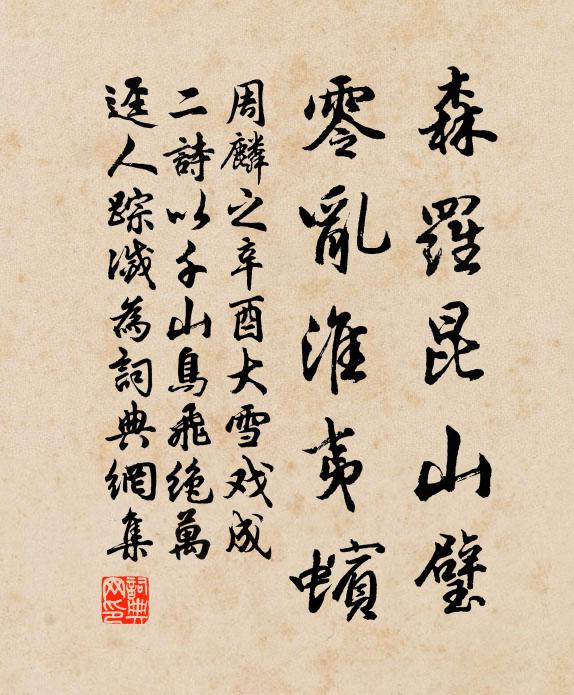 森羅昆山璧
零亂淮夷蠙
周麟之辛酉大雪戏成
二詩以千山鳥飛绝萬
逕人踪滅為詞典網集
詞典
网印